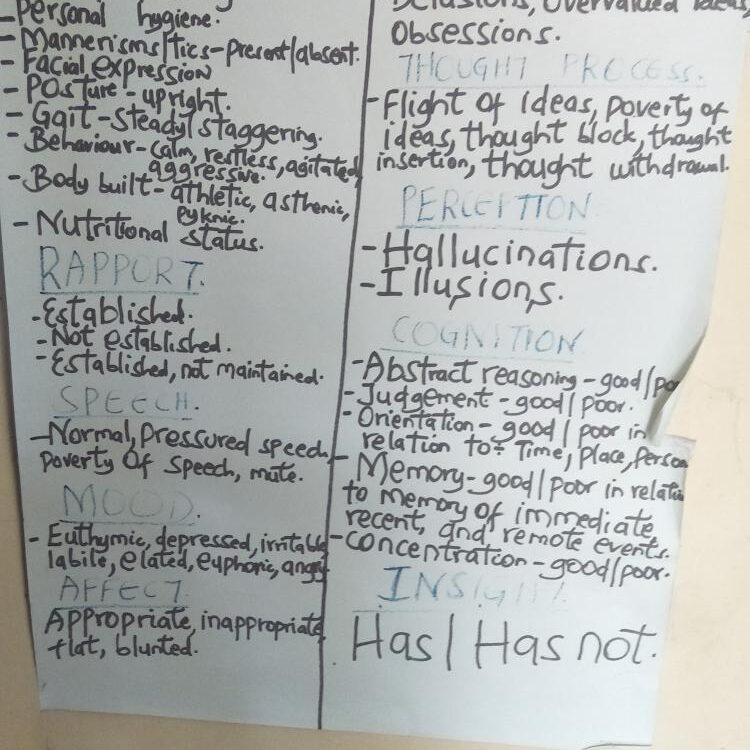 -Personal hygiene.
-Mannerisms/tics-present/absent.
-Facial expression
-Posture-upright.
-Gait-steady/staggering.
-Behaviour-calm, restless, agitated,
aggressive.
-Body built-athletic, asthenic,
pyknic.
-Nutritional status.
RAPPORT.
-Established.
-Not established.
-Established, not maintained.
SPEECH.
-Normal, pressured speech,
poverty of speech, mute.
MOOD.
-Euthymic, depressed, irritable
labile, elated, euphoric, angry
AFFECT.
Appropriate, inappropriate,
flat, blunted.
Delusions, overvalued ideas,
Obsessions.
THOUGHT PROCESS.
-Flight of ideas, poverty of
ideas, thought block, thought
insertion, thought withdrawal.
PERCEPTION
-Hallucinations.
-Illusions.
COGNITION
-Abstract reasoning-good/po
-Judgement-good/poor.
-Orientation-good/poor in
relation to: Time, place, person
-Memory-good/poor in relatio
to memory of immediate
recent, and remote events.
-Concentration-good/poor.
INSIGHT.
Has/Has not.